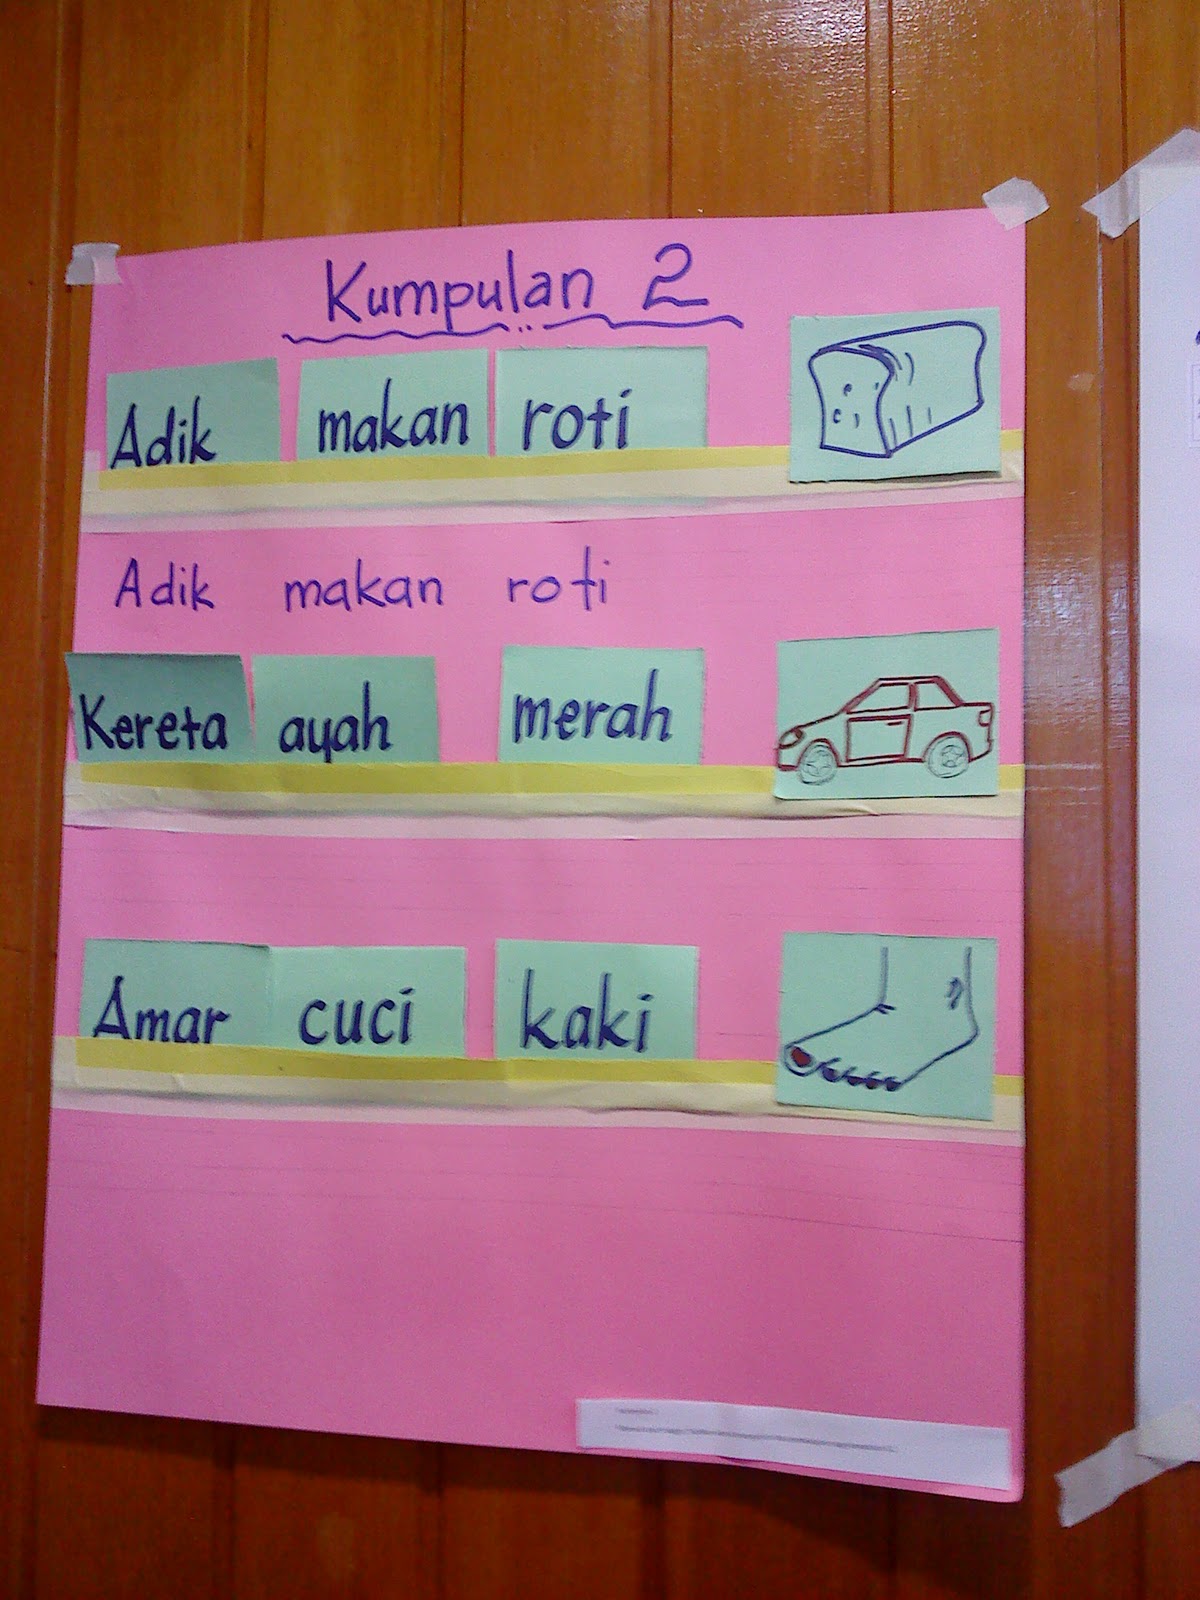 Kumpulan 2
Adik makan roti
Adik makan roti
Kereta ayah merah
Amar cuci kaki